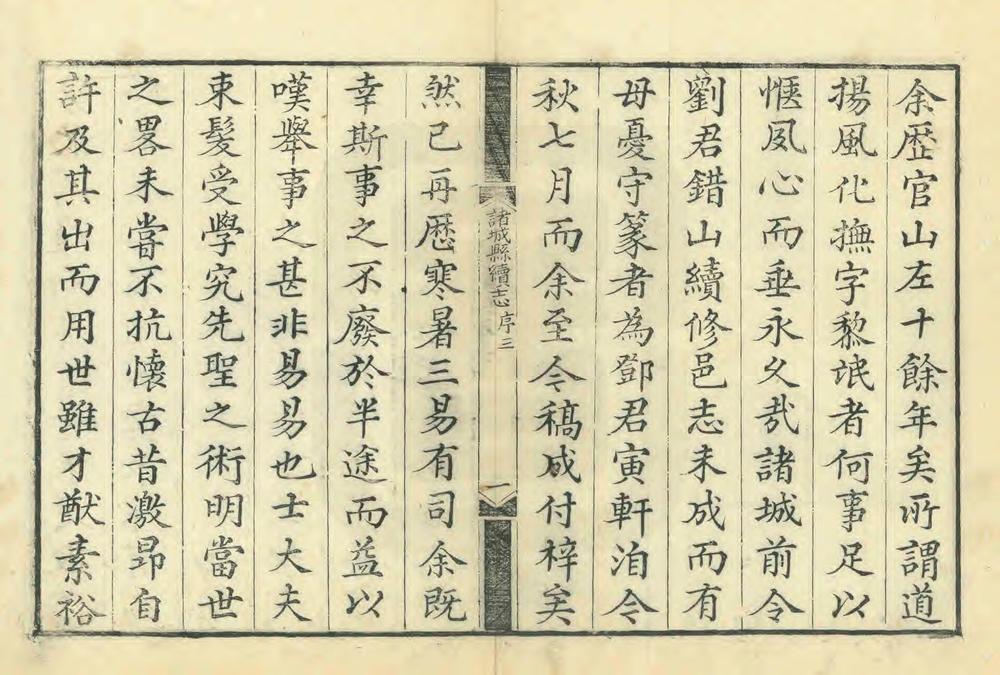 余歷官山左十餘年矣所謂道
揚風化撫字黎氓者何事足以
愜夙心而垂永久哉諸城前令
劉君錯山續修邑志未成而有
母憂守篆者為鄧君寅軒洎今
秋七月而余至今稿成付梓矣
諸城縣續志 序三 一
然已再歷寒暑三易有司余既
幸斯事之不廢於半途而益以
嘆舉事之甚非易易也士大夫
束髮受學究先聖之術明當世
之畧未嘗不抗懷古昔激昂自
許及其出而用世雖才猷素裕